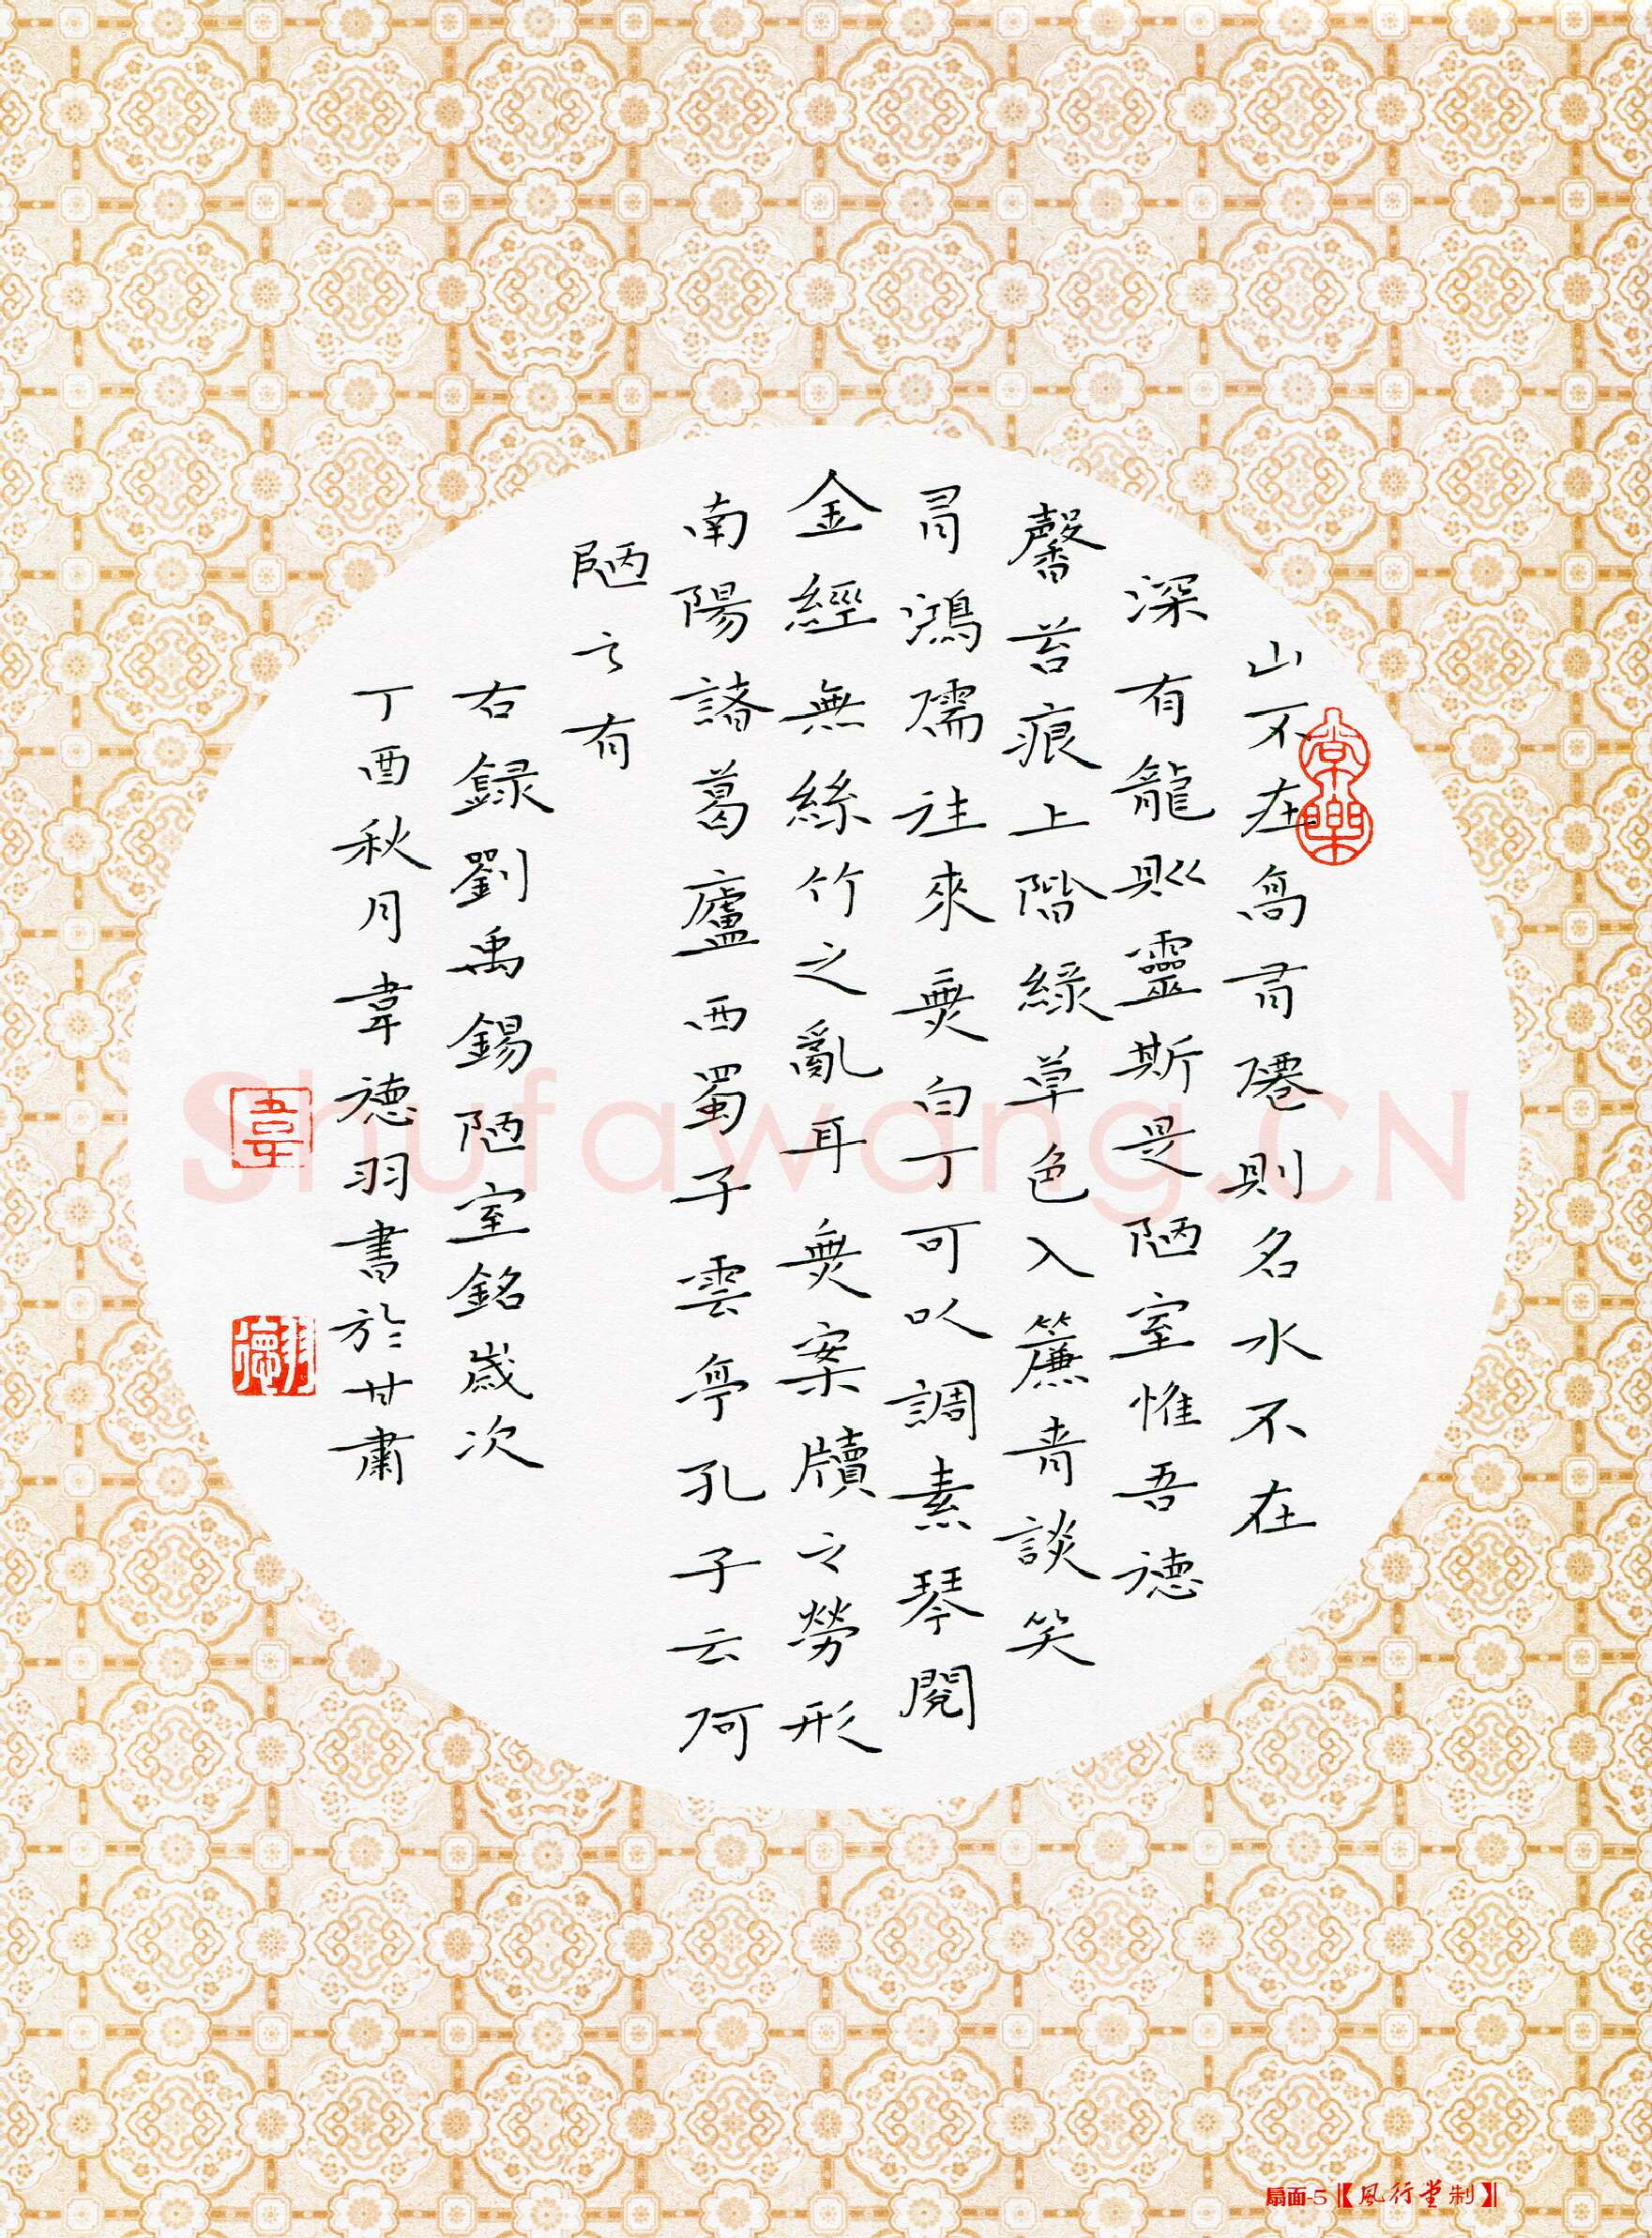 山不在高有僊則名水不在
深有龍則靈斯是陋室惟吾德
馨苔痕上階綠草色入簾青談笑
有鴻儒往來無白丁可以調素琴閱
金經無絲竹之亂耳無案牘之勞形
南陽諸葛廬西蜀子雲亭孔子云何
陋之有
右録劉禹錫陋室銘歲次
丁酉秋月韋德羽書於甘肅
常樂
韋
德羽
Shufawang.CN
扇面-5【風行堂制】